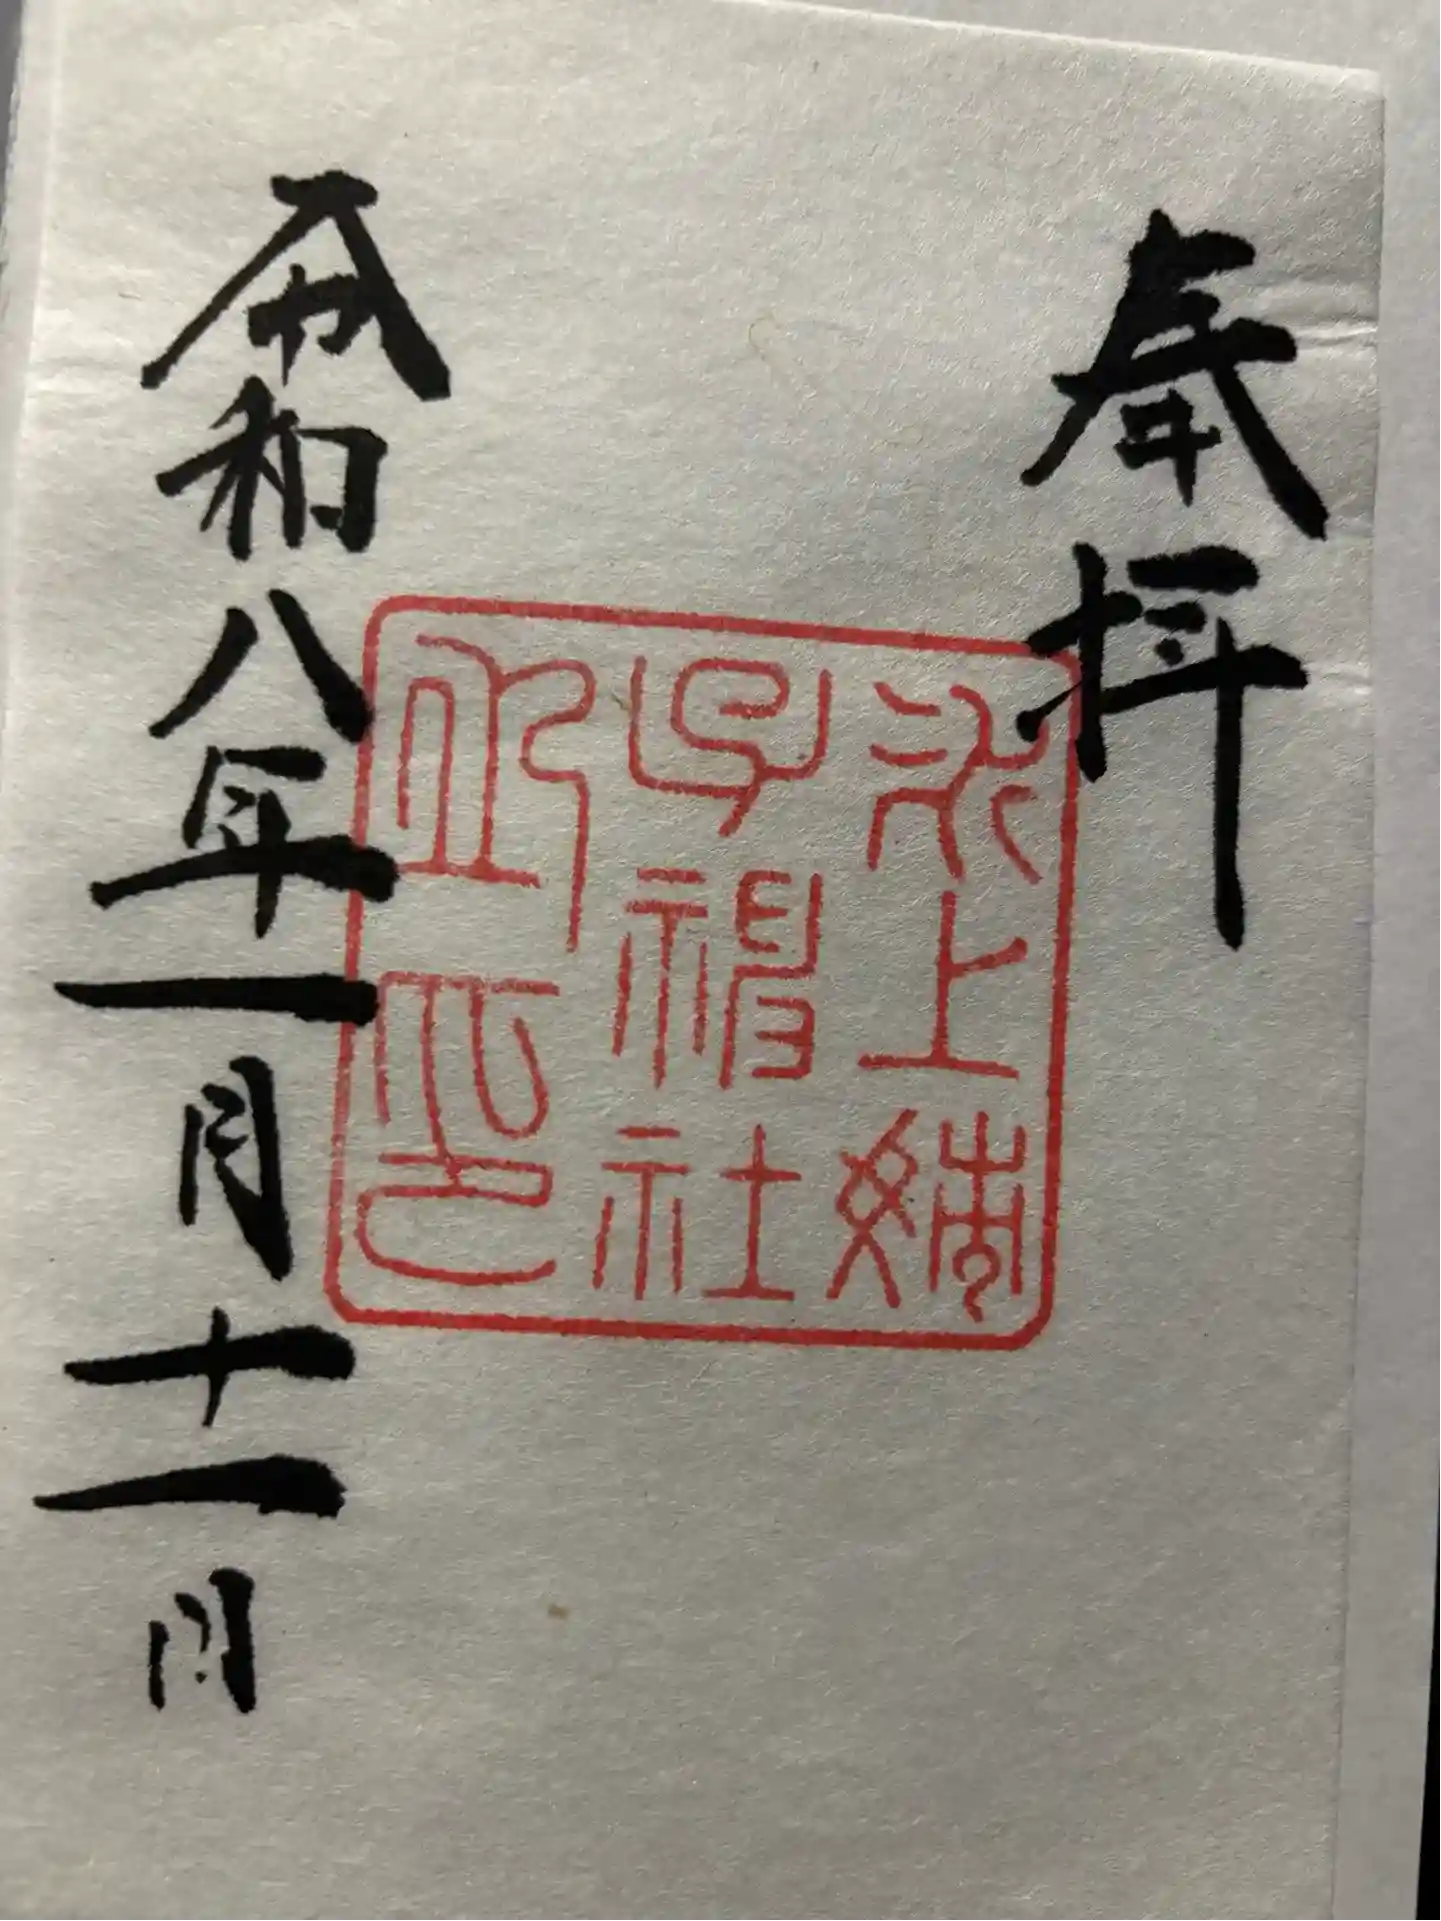 奉拝
氷上姉
子神社
印
令和八年一月十一日